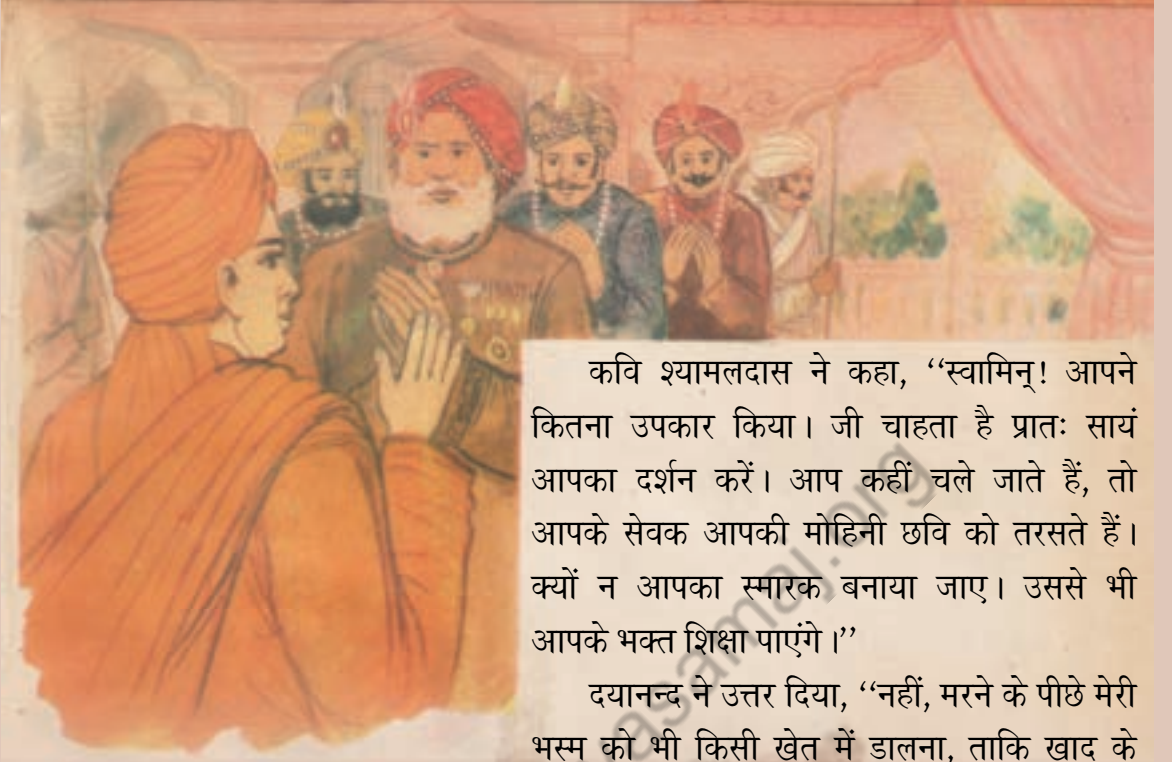 कवि श्यामलदास ने कहा, ‘‘स्वामिन्! आपने
कितना उपकार किया। जी चाहता है प्रातः सायं
आपका दर्शन करें। आप कहीं चले जाते हैं, तो
आपके सेवक आपकी मोहिनी छवि को तरसते हैं।
क्यों न आपका स्मारक बनाया जाए। उससे भी
आपके भक्त शिक्षा पाएंगे।’’
दयानन्द ने उत्तर दिया, ‘‘नहीं, मरने के पीछे मेरी
भस्म को भी किसी खेत में डालना, ताकि खाद के
asamaj.org